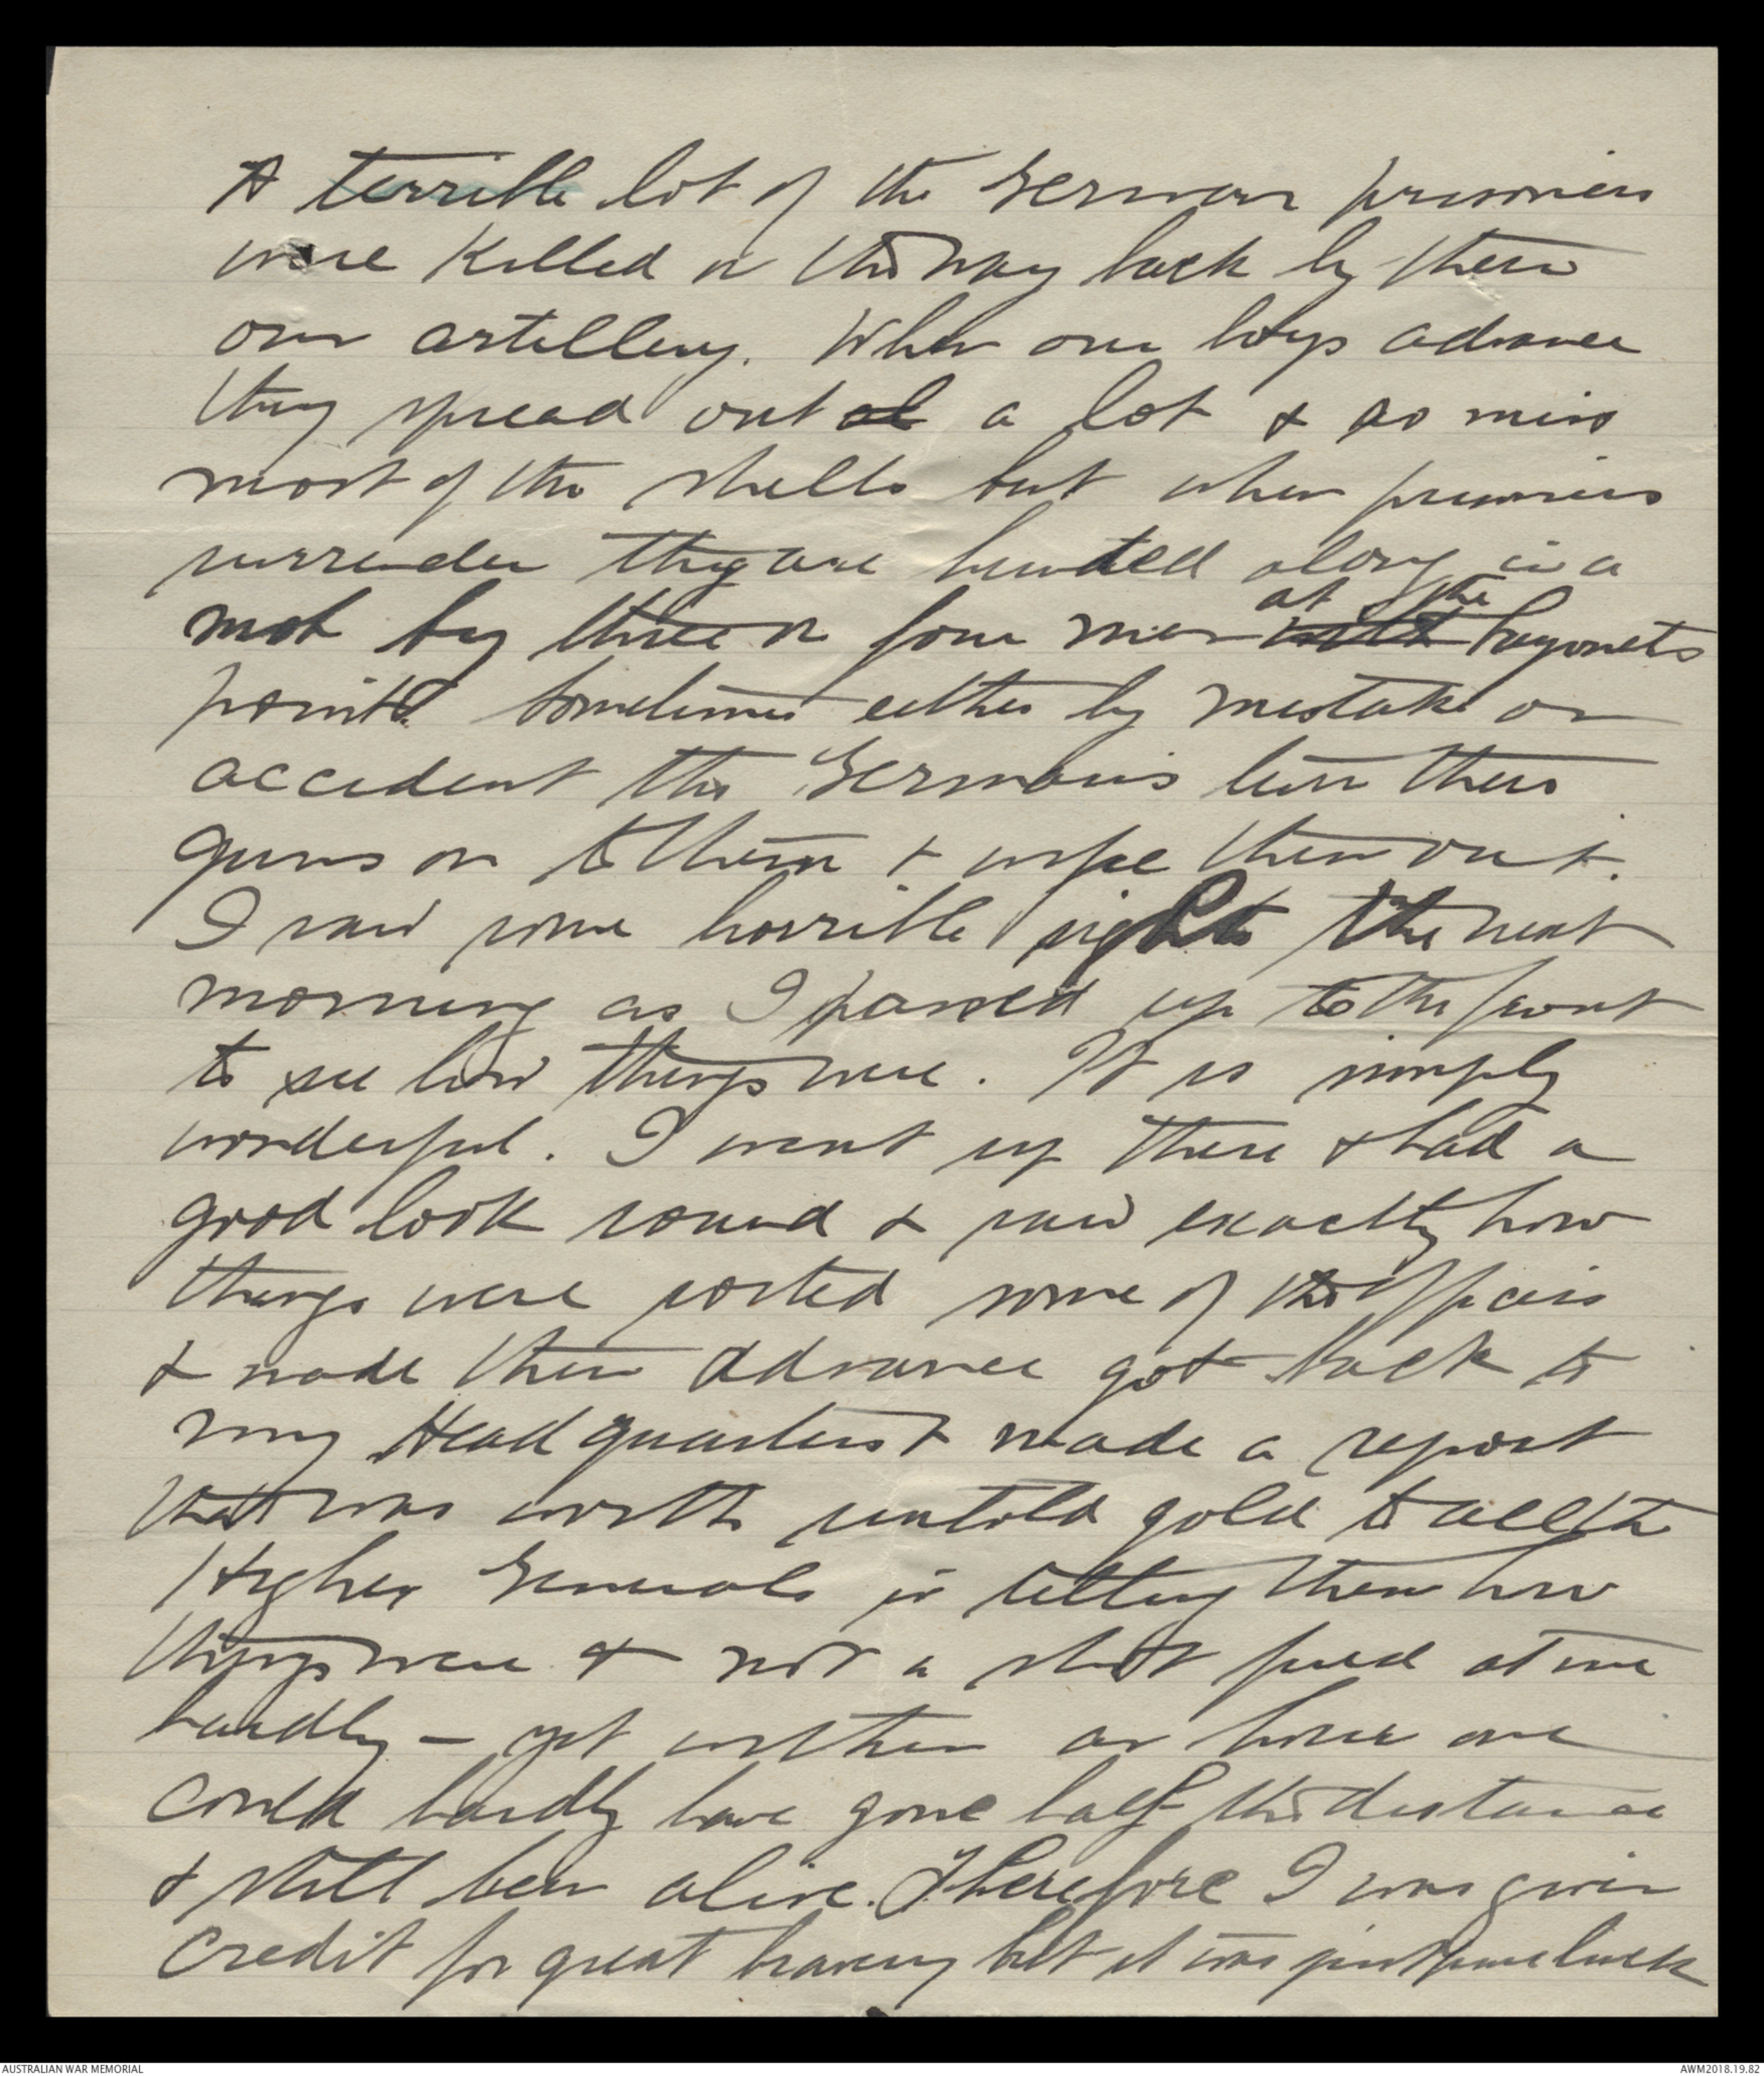 A terrible lot of the German prisoners
were killed on the way back by their
own artillery. When our boys advance
they spread out a lot & so miss
most of the shells but when prisoners
surrender they are hunted along in a
mob by three or four men at the bayonets
point. Sometimes either by mistake or
accident the Germans turn their
guns on to them & wipe them out.
I saw some horrible sights the next
morning as I passed up to the front
to see how things were. It is simply
wonderful. I went up there & had a
good look round & saw exactly how
things were sorted some of the
& made them advance got back to
my Head quarters & made a report
that was worth untold gold to all the
Higher Generals in letting them how
things were & not a shot fired at me
hardly - yet within an hour one
could hardly have gone half the distance
& still been alive. Therefore I was given
credit for great bravery but it was just pure luck
AUSTRALIAN WAR MEMORIAL
AWM2018.19.82